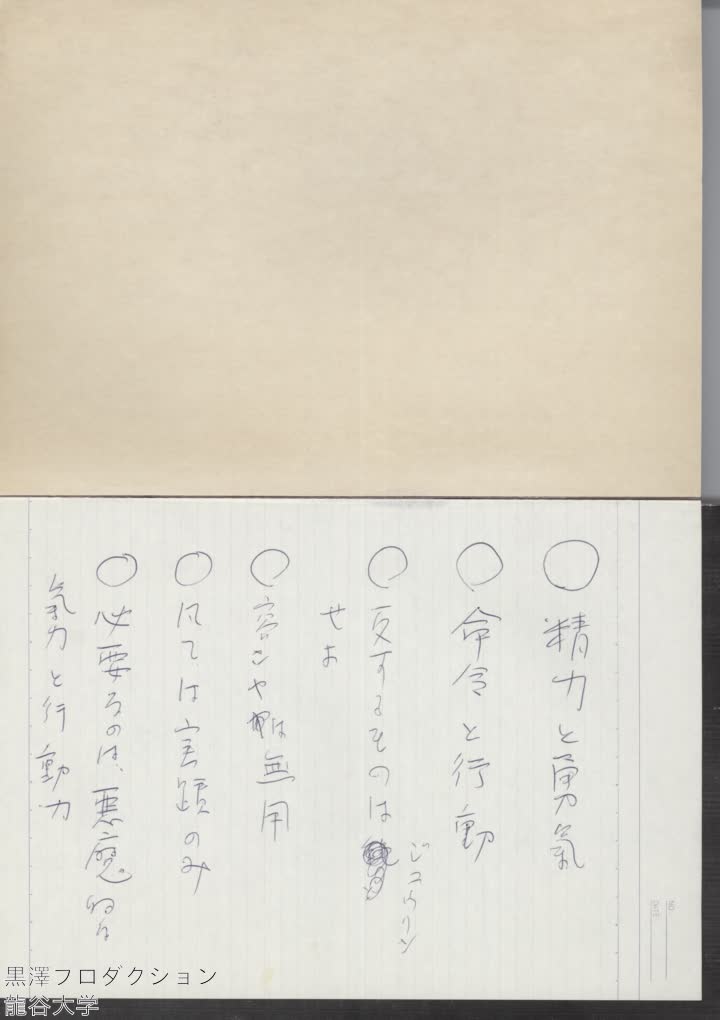 ○精力と勇氣
○命令と行動
○反するものはジュウリン
せよ
○容シャは無用
○凡ては実蹟のみ
○必要なのは、悪魔的な
氣力と行動力
No.
DATE
黒澤プロダクション
龍谷大学